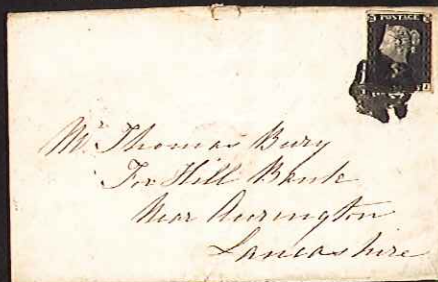 POSTAGE
Mr. Thomas Bury
Fox Hill Bank
Near Accrington
Lancashire